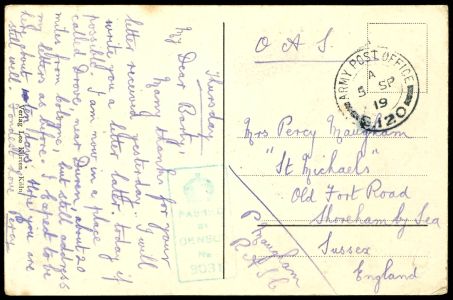 Thursday
My Dear Barty,
Many thanks for your
letter received yesterday. I will
write you a letter later today if
possible. I am now in a place
called Drove, near Düren, about 20
miles from Cologne, but still address
my letters as before. I expect to be
here about 10 days. Hope you are
still well. Fondest love
Percy
Verlag Leo Köln
O A S
ARMY POST OFFICE
A
5 SP
19
S.120
Mrs Percy Maugham
"St Michaels"
Old Fort Road
Shoreham by Sea
Sussex
England
P Maugham
PASSED
BY
CENSOR
No